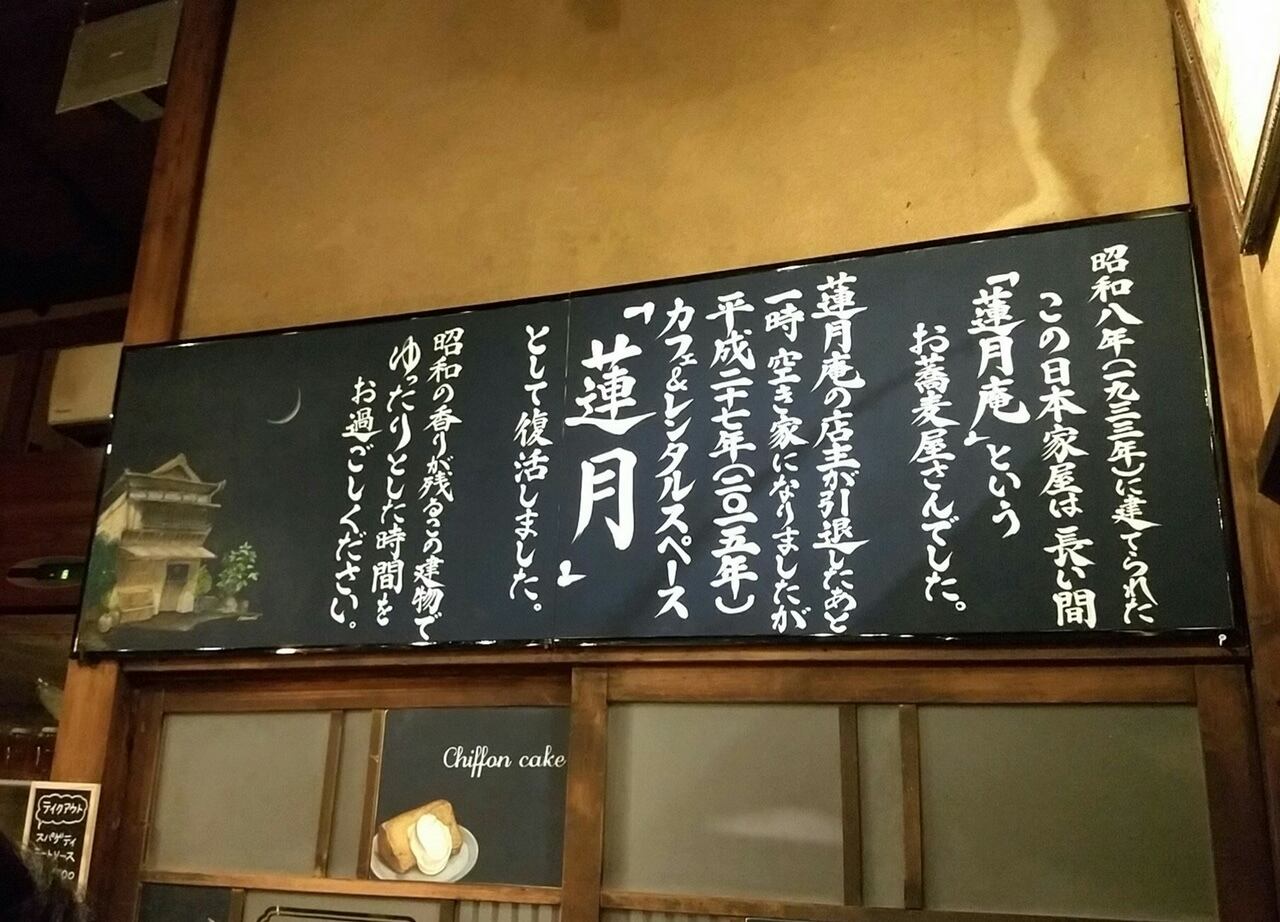 昭和八年(一九三三年)に建てられた
この日本家屋は長い間
「蓮月庵」という
お蕎麦屋さんでした。
蓮月庵の店主が引退したあと
一時空き家になりましたが
平成二十七年(二〇一五年)
カフェ&レンタルスペース
「蓮月」
として復活しました。
昭和の香りが残るこの建物で
ゆったりとした時間を
お過ごしください。
Chiffon cake
テイクアウト
スパゲティ
ートソース